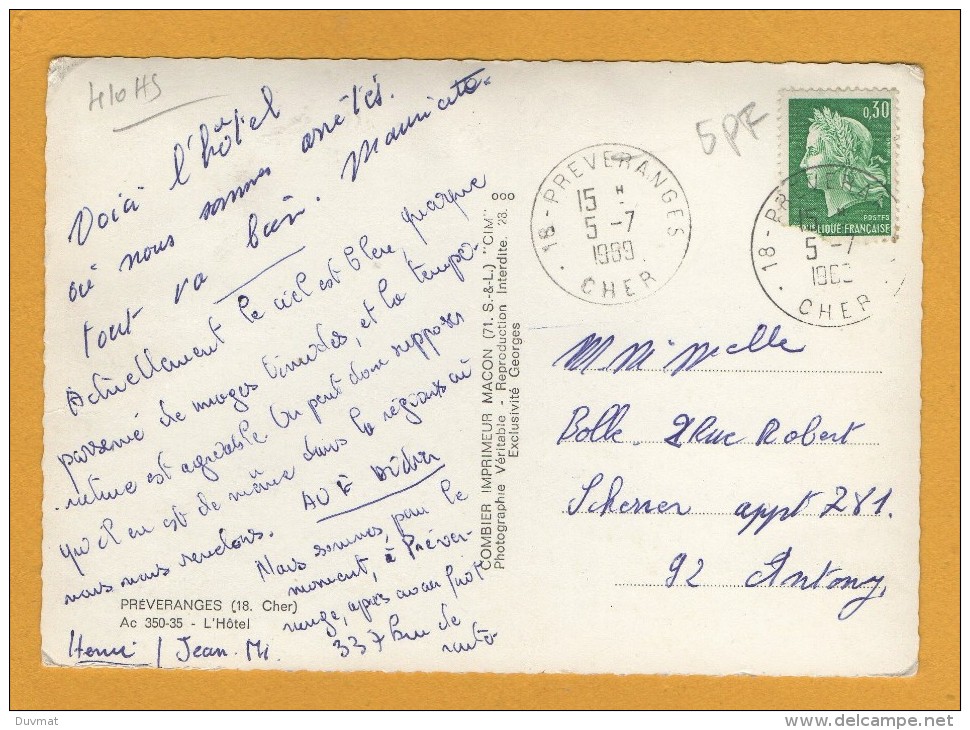 410 HS
Voici l'hôtel
où nous sommes arrêtés.
tout va bien. Mauricette.
Actuellement le ciel est bleu, quoique
parsemé de nuages timides, et la tempé-
rature est agréable. On peut donc supposer
qu'il en est de même dans la région où
nous nous rendons.
Nous sommes, pour le
moment, à Préver-
range, après avoir fait
337 km de
route
PRÉVERANGES (18. Cher)
Ac 350-35 - L'Hôtel
Henri / Jean. Mi.
COMBIER IMPRIMEUR MACON (71. S.-&-L.) "CIM"
Photographie Véritable - Reproduction Interdite. 28.
Exclusivité Georges
5 PF
18 - PREVERANGES
15 H
5 -7
1969
CHER
0,30
POSTES
REPUBLIQUE FRANÇAISE
18 - PREVERANGES
15 H
5 -7
1969
CHER
M. Mme Melle
Bolle. 2 Rue Robert
Scherrer appt 281.
92 Antony
Duvmat
www.delcampe.net